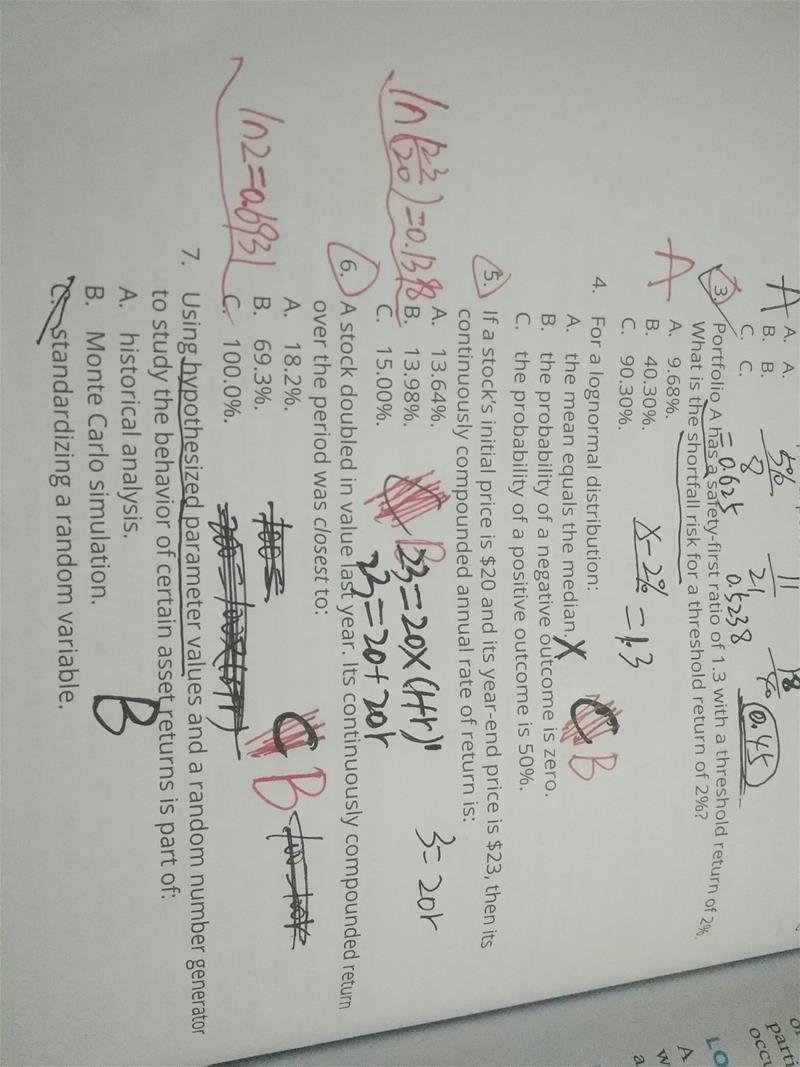 A. A.
B. B.
C. C.
A
5%
8
= 0.625
11
21
0.5238
18
40
0.45
3. Portfolio A has a safety-first ratio of 1.3 with a threshold return of 2%.
What is the shortfall risk for a threshold return of 2%?
A. 9.68%.
B. 40.30%.
C. 90.30%.
A
x-2% = 1.3
4. For a lognormal distribution:
A. the mean equals the median. X
B. the probability of a negative outcome is zero.
C. the probability of a positive outcome is 50%.
C B
5. If a stock's initial price is $20 and its year-end price is $23, then its
continuously compounded annual rate of return is:
A. 13.64%.
B. 13.98%.
C. 15.00%.
ln(23/20) = 0.1398
C B
23=20×(1+r)¹
23=20+20r
3=20r
6. A stock doubled in value last year. Its continuously compounded return
over the period was closest to:
A. 18.2%.
B. 69.3%.
C. 100.0%.
ln2=0.6931
C B
7. Using hypothesized parameter values and a random number generator
to study the behavior of certain asset returns is part of:
A. historical analysis.
B. Monte Carlo simulation.
C. standardizing a random variable.
B
LO
A
w
a
parti
occu